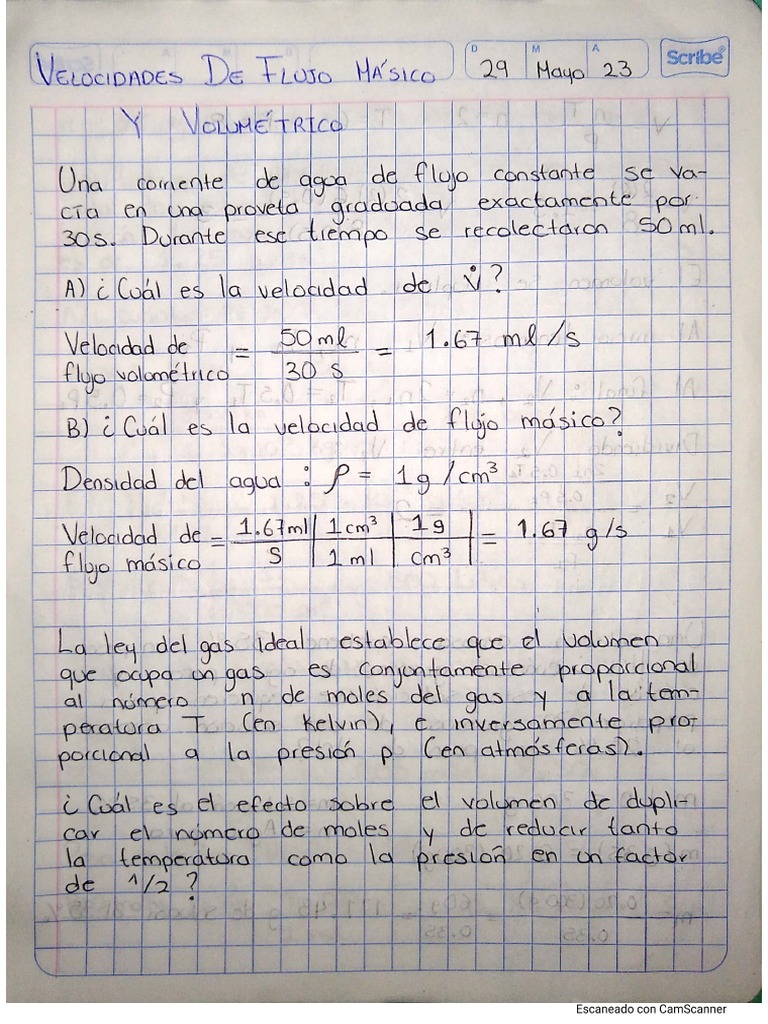 VELOCIDADES DE FLUJO MÁSICO
D M A
29 Mayo 23
Scribe
Y VOLUMÉTRICO
Una corriente de agua de flujo constante se va-
cía en una proveta graduada exactamente por
30s. Durante ese tiempo se recolectaron 50 ml.
A) ¿Cuál es la velocidad de V̇?
Velocidad de flujo volumétrico = 50 ml / 30 s = 1.67 ml/s
B) ¿Cuál es la velocidad de flujo másico?
Densidad del agua : ρ = 1g/cm³
Velocidad de flujo másico = 1.67 ml / s | 1 cm³ / 1 ml | 1 g / cm³ | = 1.67 g/s
La ley del gas ideal establece que el volumen
que ocupa un gas es conjuntamente proporcional
al número n de moles del gas y a la tem-
peratura T (en Kelvin), e inversamente pro-
porcional a la presión p (en atmósferas).
¿Cuál es el efecto sobre el volumen de dupli-
car el número de moles y de reducir tanto
la temperatura como la presión en un factor
de 1/2 ?
Escaneado con CamScanner